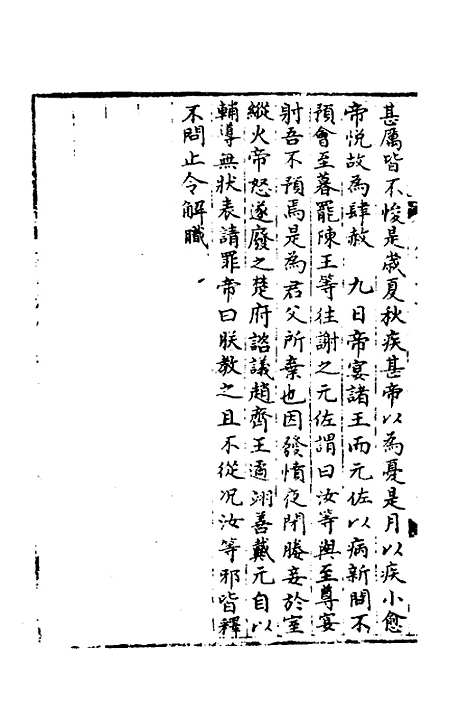 甚厲皆不悛是歲夏秋疾甚帝以為憂是月以疾小愈
帝悅故為肆赦　九日帝宴諸王而元佐以病新間不
預會至暮罷陳王等往謝之元佐謂曰汝等與至尊宴
射吾不預焉是為君父所棄也因發憤夜閉媵妾於室
縱火帝怒遂廢之楚府諮議趙齊王遹翊善戴元自以
輔導無狀表請罪帝曰朕教之且不從况汝等邪皆釋
不問止令解職